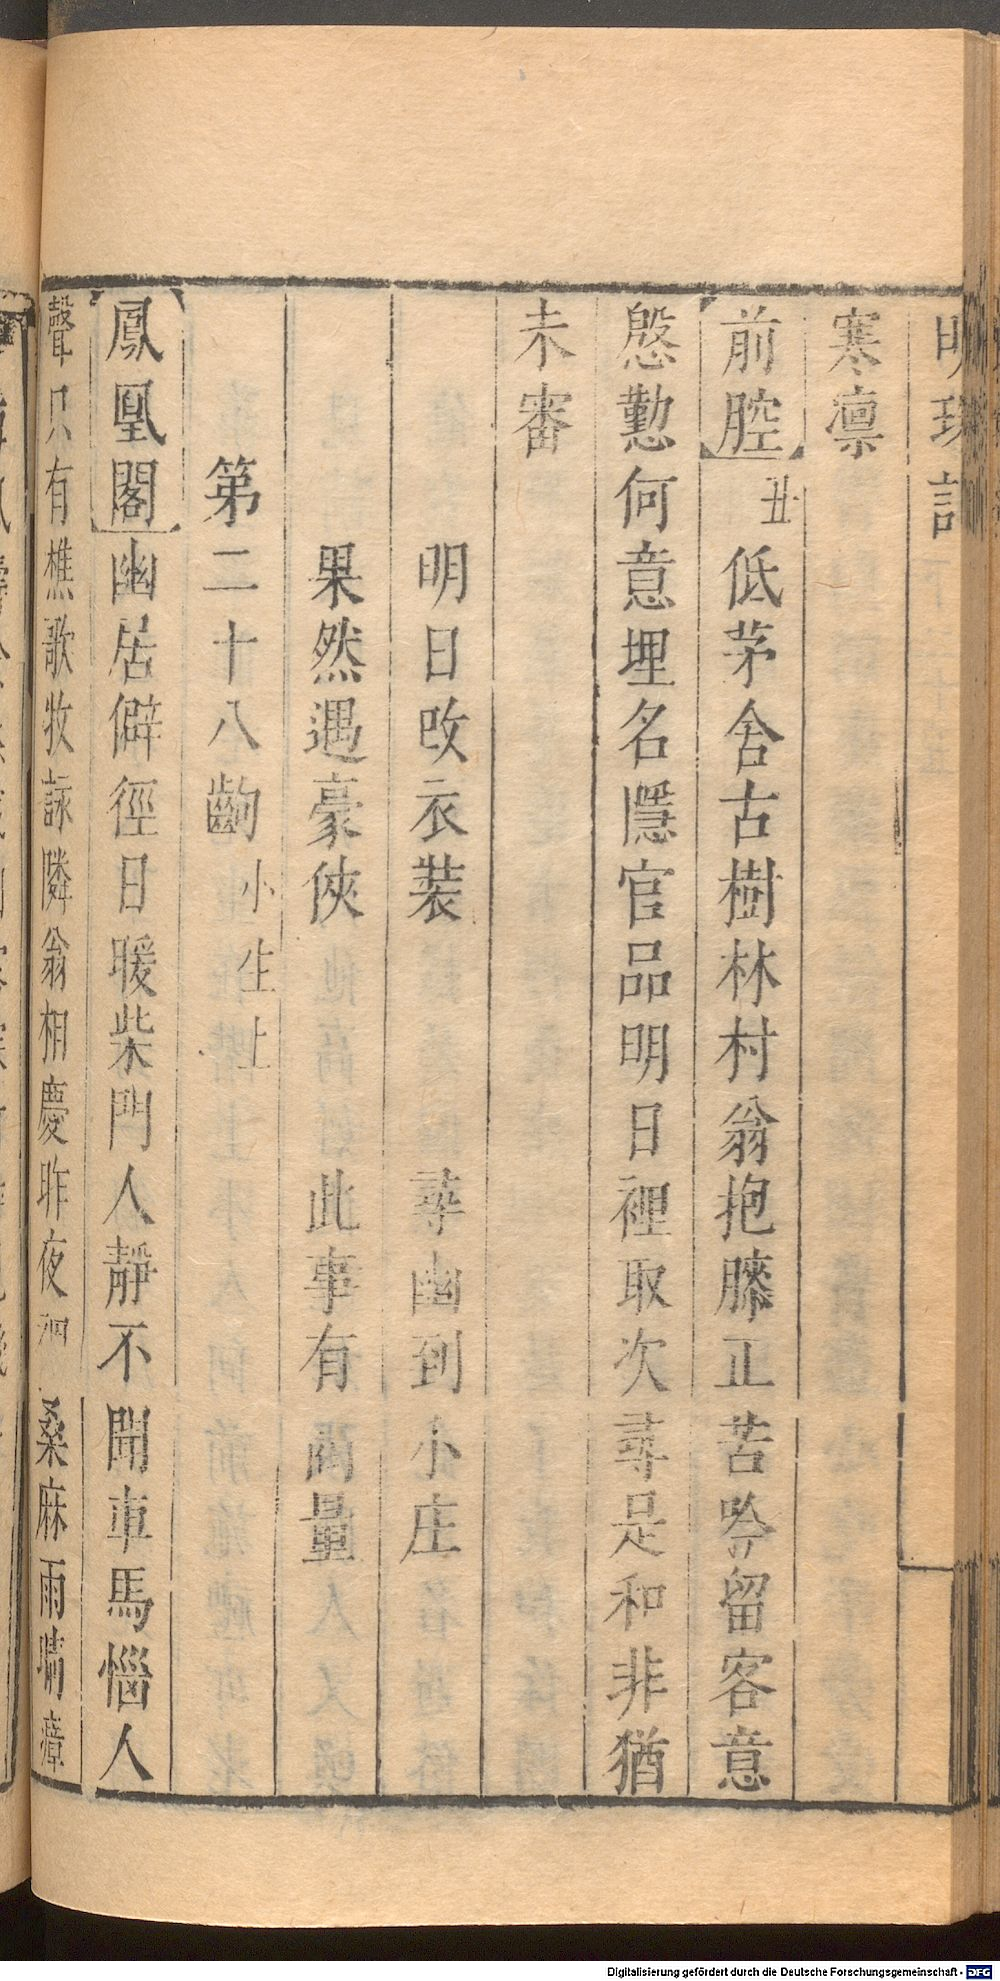 明珠記
寒凛
前腔 丑 低茅舍古樹林村翁抱膝正苦吟留客意
慇懃何意埋名隱官品明日裡取次尋是和非猶
未審
明日改衣裝 尋幽到小庄
果然遇豪俠 此事有商量
第二十八齣 小生上
鳳凰閣 幽居僻徑日暖柴門人靜不聞車馬惱人
聲只有樵歌牧詠隣翁相慶昨夜 桑麻雨晴
Digitalisierung gefördert durch die Deutsche Forschungsgemeinschaft - DFG